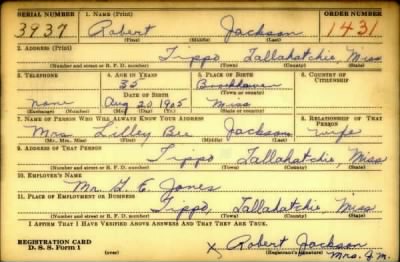 SERIAL NUMBER 1. NAME (Print) ORDER NUMBER
3937 Robert Jackson 1431
(First) (Middle) (Last)
2. ADDRESS (Print)
Tippo Tallahatchie, Miss
(Number and street or R. F. D. number) (Town) (County) (State)
3. TELEPHONE 4. AGE IN YEARS 5. PLACE OF BIRTH 6. COUNTRY OF CITIZENSHIP
35 Brookhaven
DATE OF BIRTH (Town or county)
none Aug 20 1905 Miss
(Exchange) (Number) (Mo.) (Day) (Yr.) (State or country)
7. NAME OF PERSON WHO WILL ALWAYS KNOW YOUR ADDRESS 8. RELATIONSHIP OF THAT PERSON
Mrs Lilley Bee Jackson wife
(Mr., Mrs., Miss) (First) (Middle) (Last)
9. ADDRESS OF THAT PERSON
Tippo Tallahatchie, Miss
(Number and street or R. F. D. number) (Town) (County) (State)
10. EMPLOYER'S NAME
Mr. G. E. Jones
11. PLACE OF EMPLOYMENT OR BUSINESS
Tippo, Tallahatchie, Miss
(Number and street or R. F. D. number) (Town) (County) (State)
I AFFIRM THAT I HAVE VERIFIED ABOVE ANSWERS AND THAT THEY ARE TRUE.
REGISTRATION CARD
D. S. S. Form 1 (over) X Robert Jackson
(Registrant's signature) Mrs.